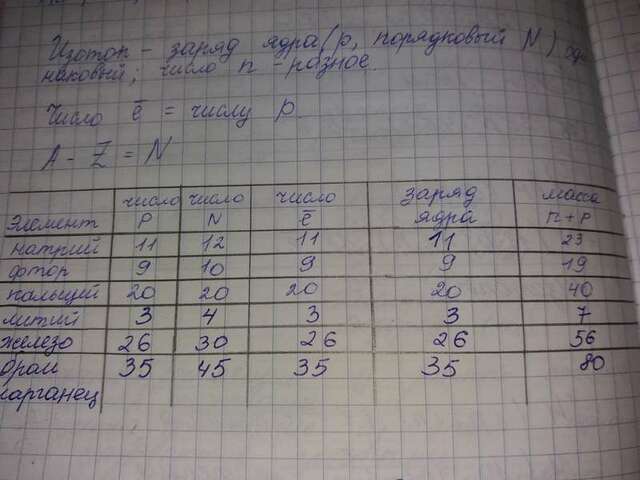 Изотоп - заряд ядра (p, порядковый N) од
наковый; число n - разное.
Число ē = числу p.
A - Z = N
Элемент число P число N число ē заряд ядра масса n+p
натрий 11 12 11 11 23
фтор 9 10 9 9 19
кальций 20 20 20 20 40
литий 3 4 3 3 7
железо 26 30 26 26 56
бром 35 45 35 35 80
марганец